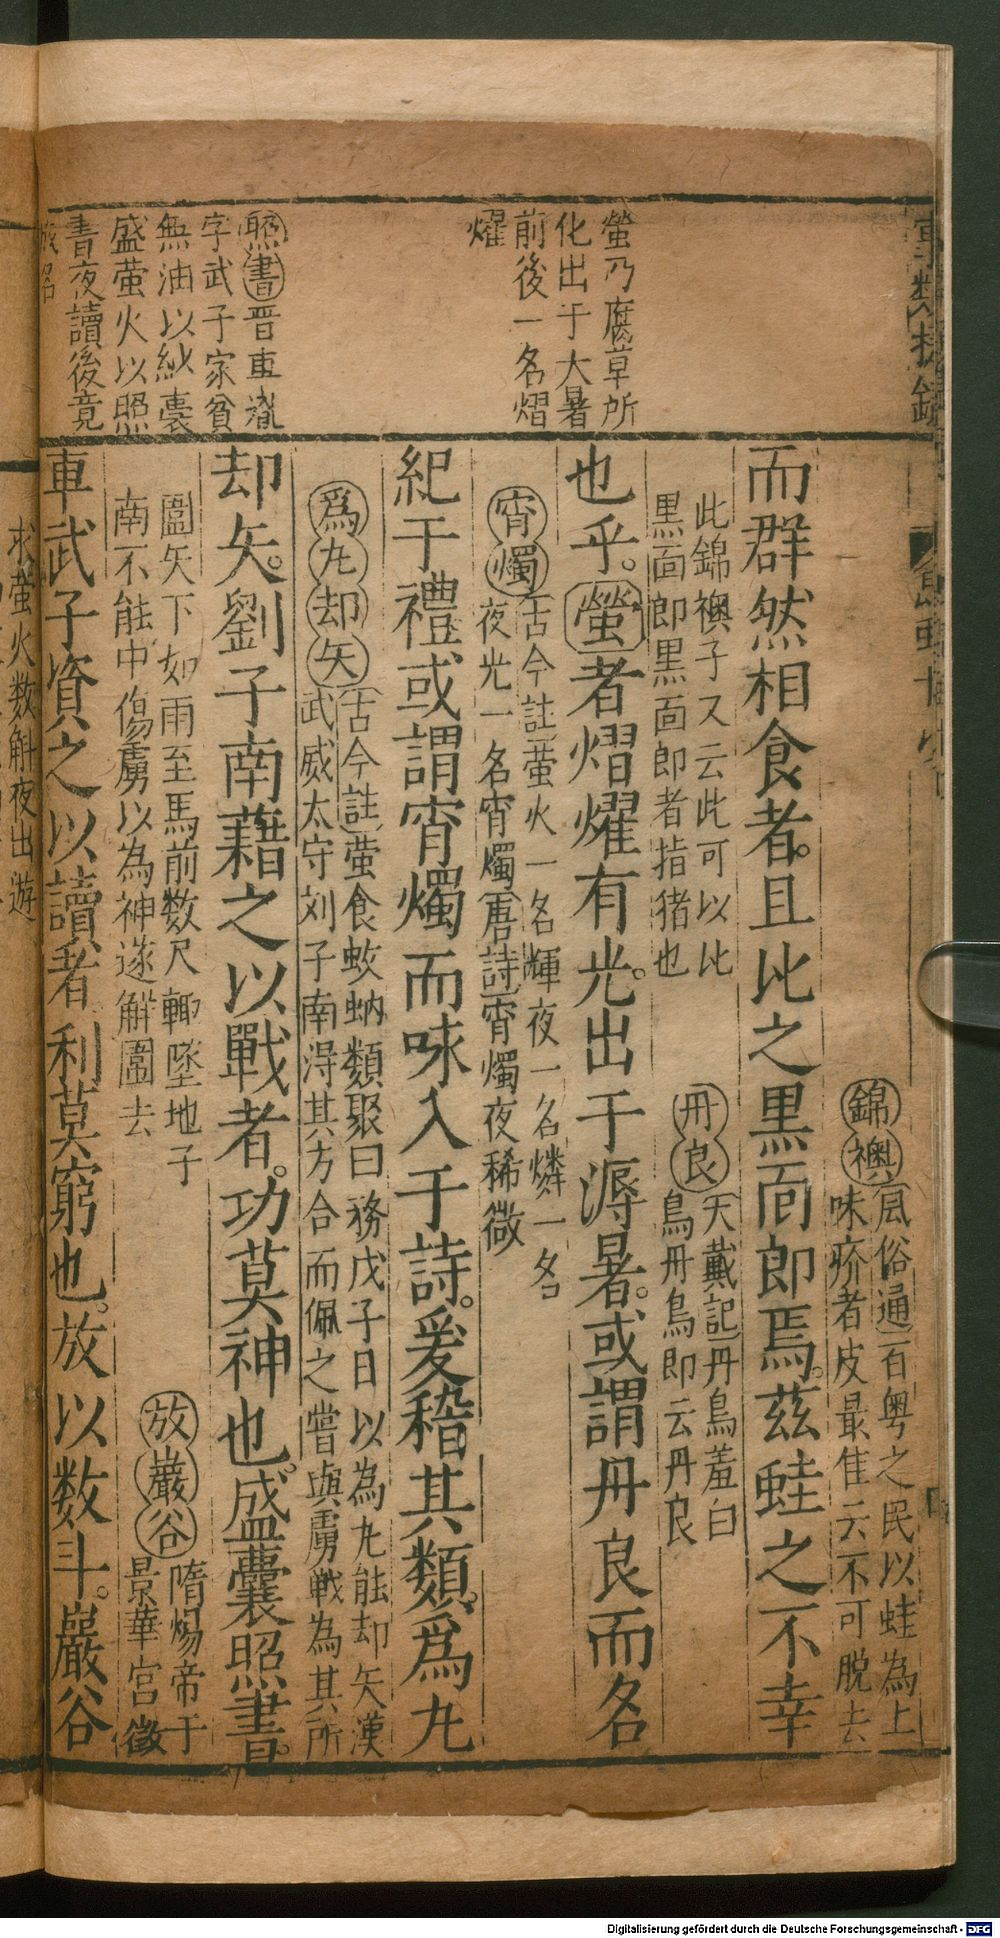 螢乃腐草所
化出于大暑
前後一名熠
燿
照書晋車胤
字武子家貧
無油以紗裹
盛萤火以照
書夜讀後竟
成名
錦襖
風俗通百粤之民以蛙為上
味疥者皮最佳云不可脱去
而群然相食者且比之黒面郎焉茲蛙之不幸
此錦襖子又云此可以比
黒面郎黒面郎者指猪也
丹良
天戴記丹鳥羞白
鳥丹鳥即云丹良
也乎螢者熠燿有光出于溽暑或謂丹良而名
宵燭
古今註萤火一名輝夜一名燐一名
夜光一名宵燭唐詩宵燭夜稀微
紀于禮或謂宵燭而咏入于詩爰稽其類爲九
爲九却矢
古今註萤食蚊蚋類聚曰務戊子日以為九能却矢漢
武威太守刘子南淂其方合而佩之嘗與虜戦為其所
却矢劉子南藉之以戰者功莫神也盛囊照書
圍矢下如雨至馬前数尺輒墜地子
南不能中傷虜以為神遂解圍去
放巖谷
隋煬帝于
景華宫徵
車武子資之以讀者利莫窮也放以数斗巖谷
求萤火数斛夜出遊
Digitalisierung gefördert durch die Deutsche Forschungsgemeinschaft - DFG